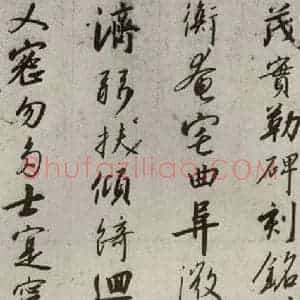 茂實勒碑刻銘
衡奄宅曲阜微
濟弱扶傾綺迴
乂密勿多士寔寧
Shufaziliao.com